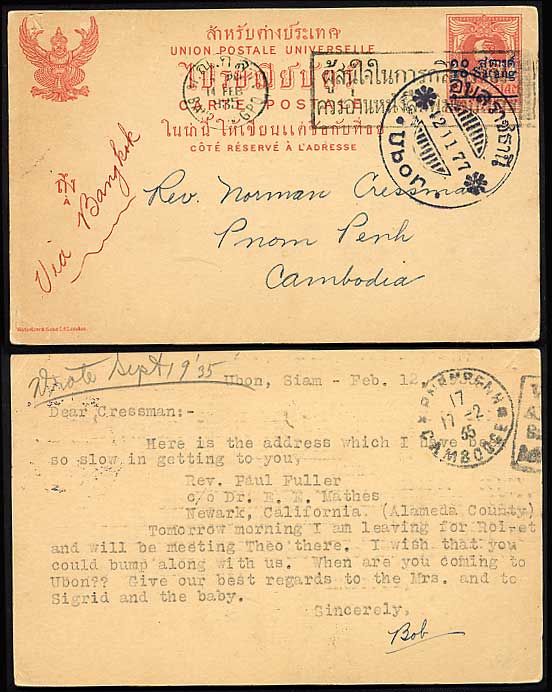 สำหรับต่างประเทศ
UNION POSTALE UNIVERSELLE
ไปรษณียบัตร
CARTE POSTALE
ในหน้านี้ ให้เขียนแต่ตำบลกับที่อยู่
CÔTÉ RÉSERVÉ À L'ADRESSE
๑๐ สตางค์
10 Satang
14 FEB
GPO
อุบลราชธานี
12 11 77
UBON
ถึง
Via Bangkok
Rev. Norman Cressman
Pnom Penh
Cambodia
Waterlow & Sons Ld London
Wrote Sept 19 '35
Ubon, Siam - Feb. 12
PNOMPENH
17
17-2
35
CAMBODGE
Dear Cressman:-
Here is the address which I have been
so slow in getting to you,
Rev. Paul Fuller
c/o Dr. E. E. Mathes
Newark, California. (Alameda County)
Tomorrow morning I am leaving for Roi-et
and will be meeting Theo there. I wish that you
could bump along with us. When are you coming to
Ubon?? Give our best regards to the Mrs. and to
Sigrid and the baby.
Sincerely,
Bob